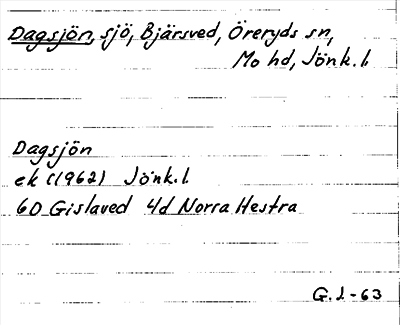 Dagsjön, sjö, Bjärsved, Öreryds sn,
Mo hd, Jönk.l.
Dagsjön
ek (1962) Jönk.l.
6D Gislaved 4d Norra Hestra
G.L-63